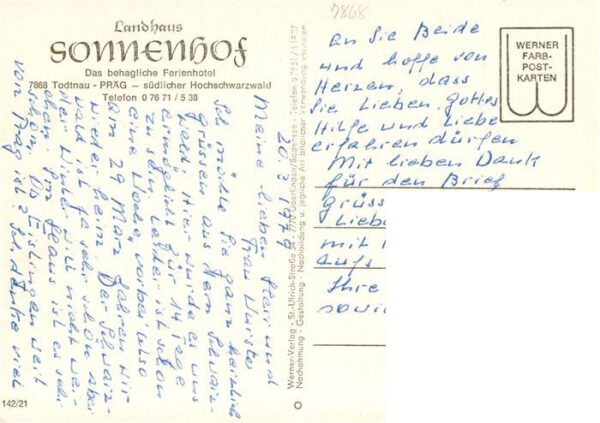 7868
Landhaus
SONNENHOF
Das behagliche Ferienhotel
7868 Todtnau - PRÄG – südlicher Hochschwarzwald
Telefon 0 76 71 / 5 38
20.3.1979
Meine lieben Herr und
Frau Wurster
Ich möchte Sie ganz herzlich
grüssen aus dem Schwarz-
wald. Hier wurde es uns
ermöglicht für 14 Tage
zu sein. Leider ist schon
eine Woche vorbei also
am 29 März fahren wir
wieder heim. Der Schwarz-
wald ist ja sehr schön aber
der Winter will nicht wei-
chen. Im Haus ist es sehr
schön. Ob Eislingen weit
von Präg ist? Ich denke viel
an Sie Beide
und hoffe von
Herzen, dass
Sie Lieben Gottes
Hilfe und Liebe
erfahren dürfen
Mit lieben Dank
für den Brief
grüss
Liebe
mit
aufs
Ihre
sowi
WERNER
FARB-
POST-
KARTEN
Werner-Verlag - St.-Ulrich-Straße 34 - 7770 Überlingen/Bodensee - Telefon
Nachahmung - Gestaltung - Nachbildung u. jegliche Art bildlicher Verwendung verboten
142/21